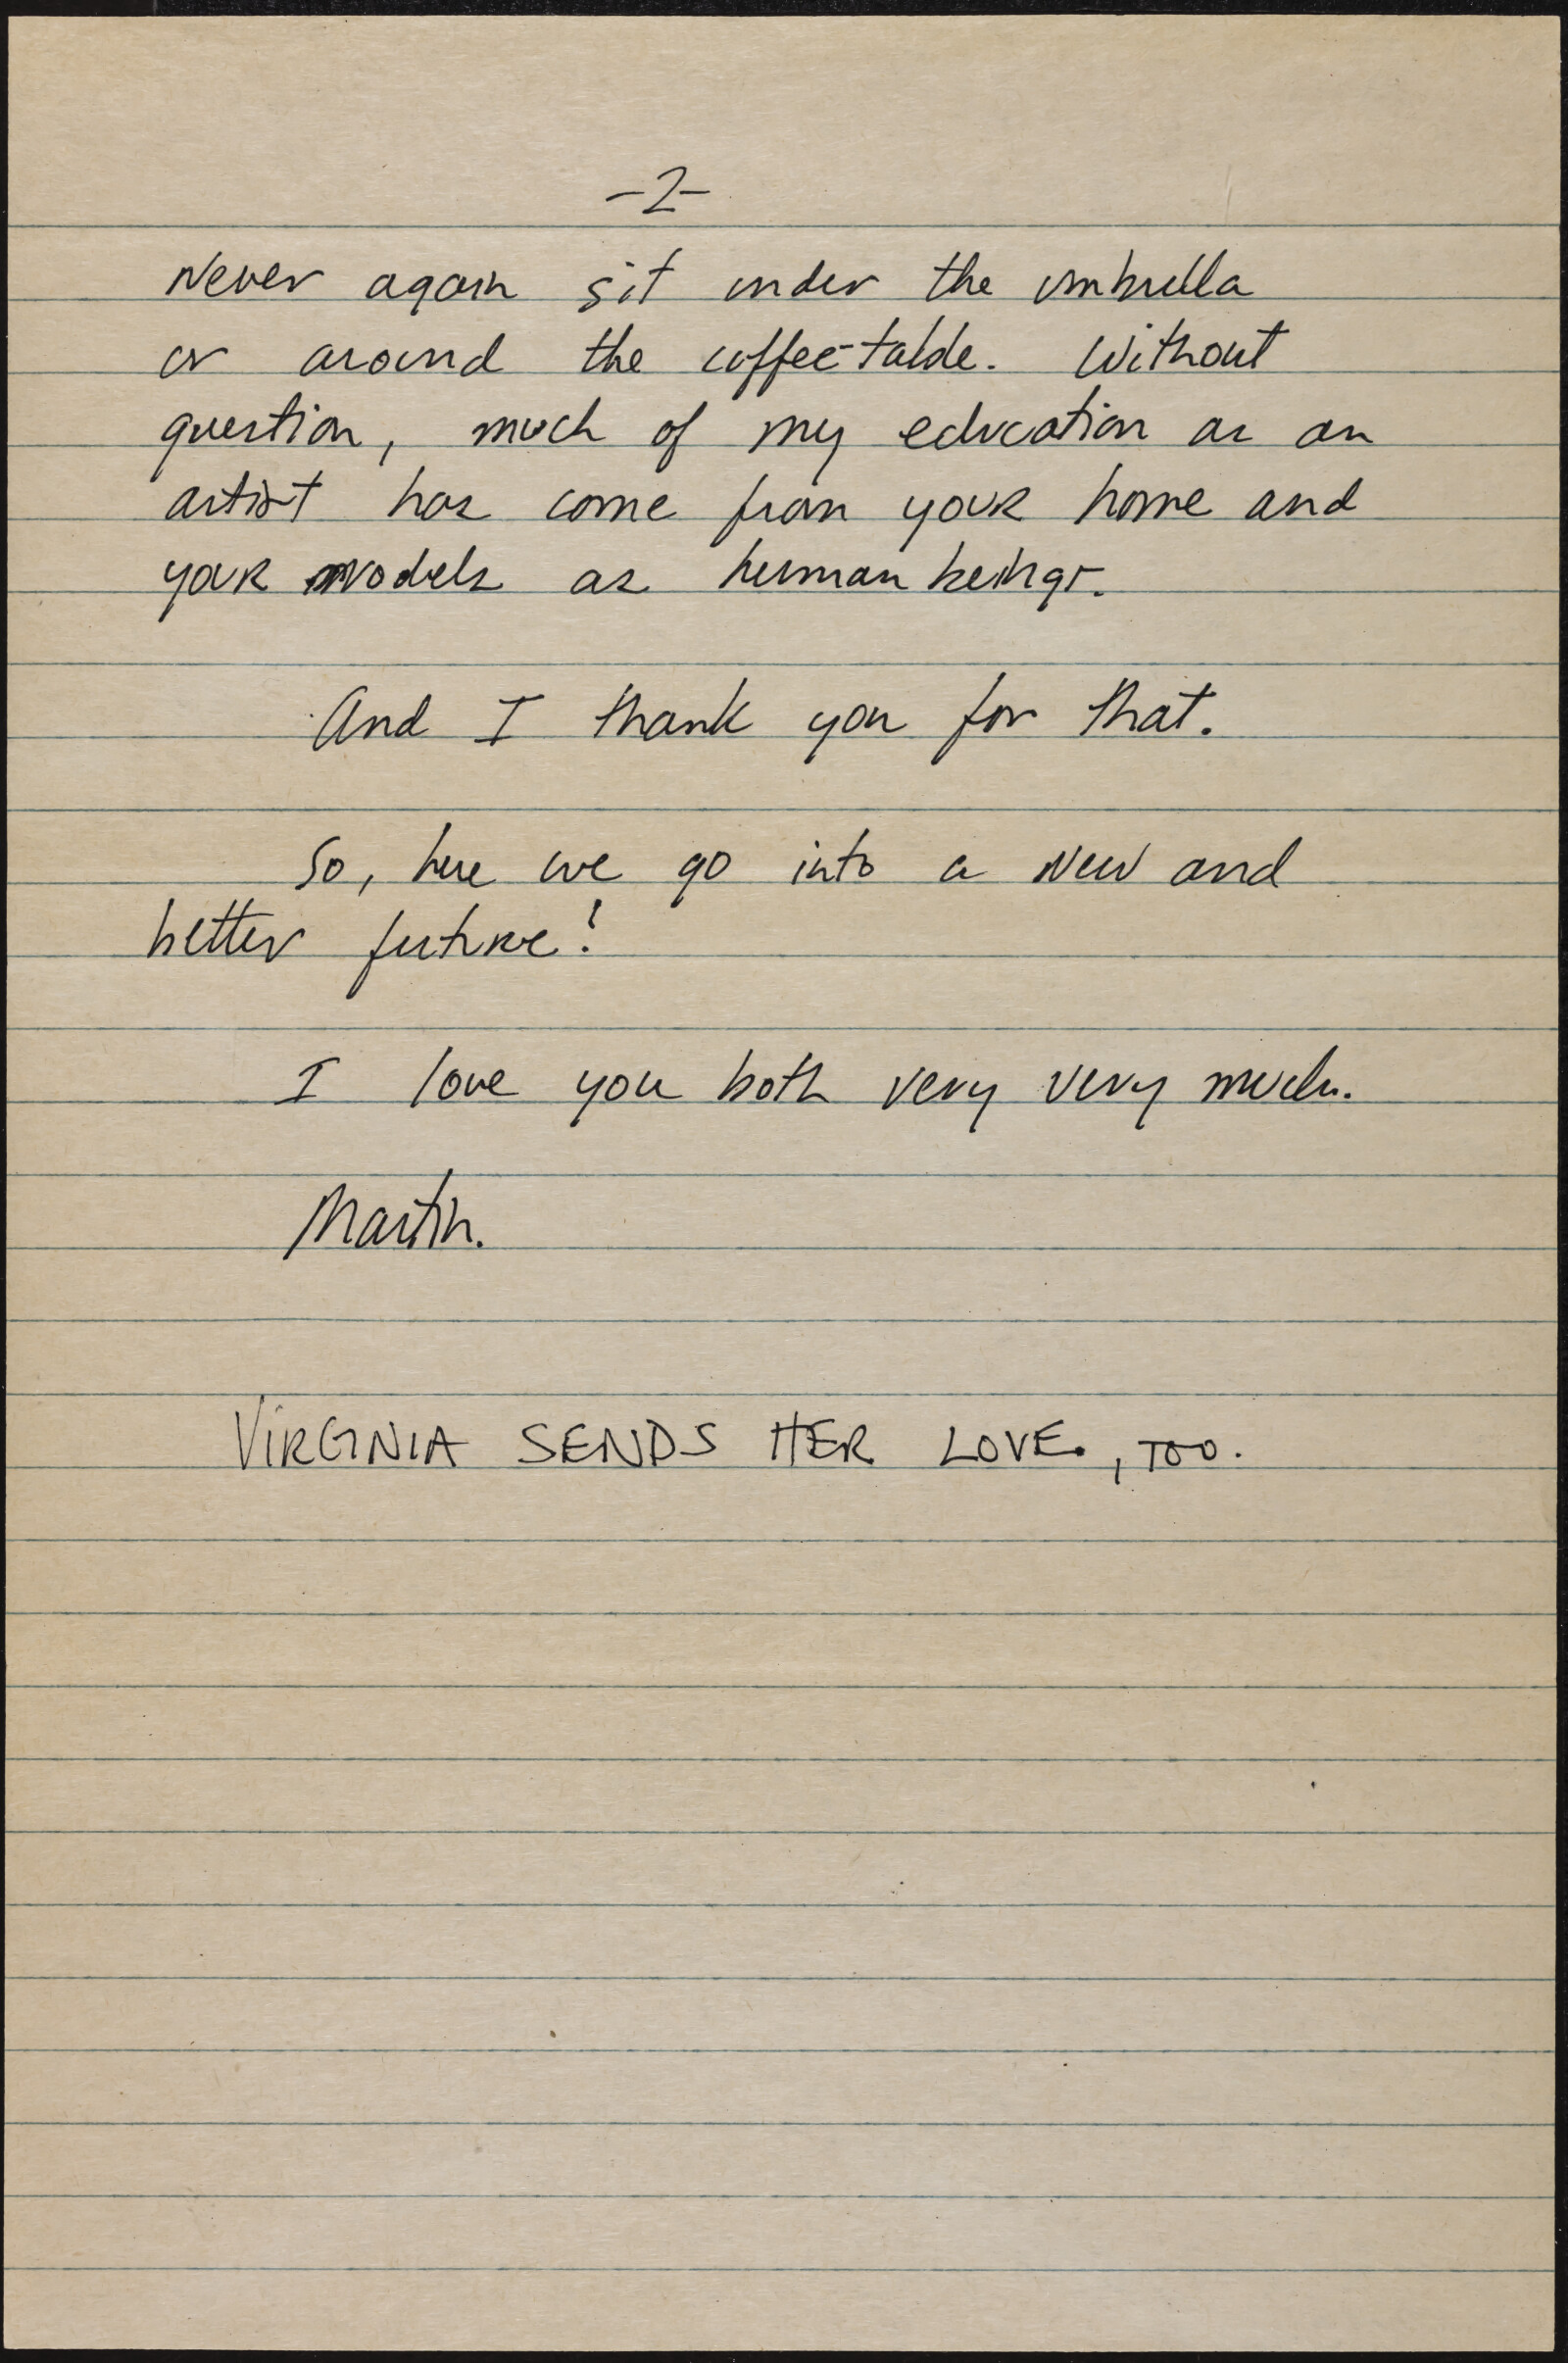 -2-
Never again sit under the umbrella
or around the coffee-table. Without
question, much of my education as an
artist has come from your home and
your models as human beings.
And I thank you for that.
So, here we go into a new and
better future!
I love you both very very much.
Martin.
VIRGINIA SENDS HER LOVE., TOO.